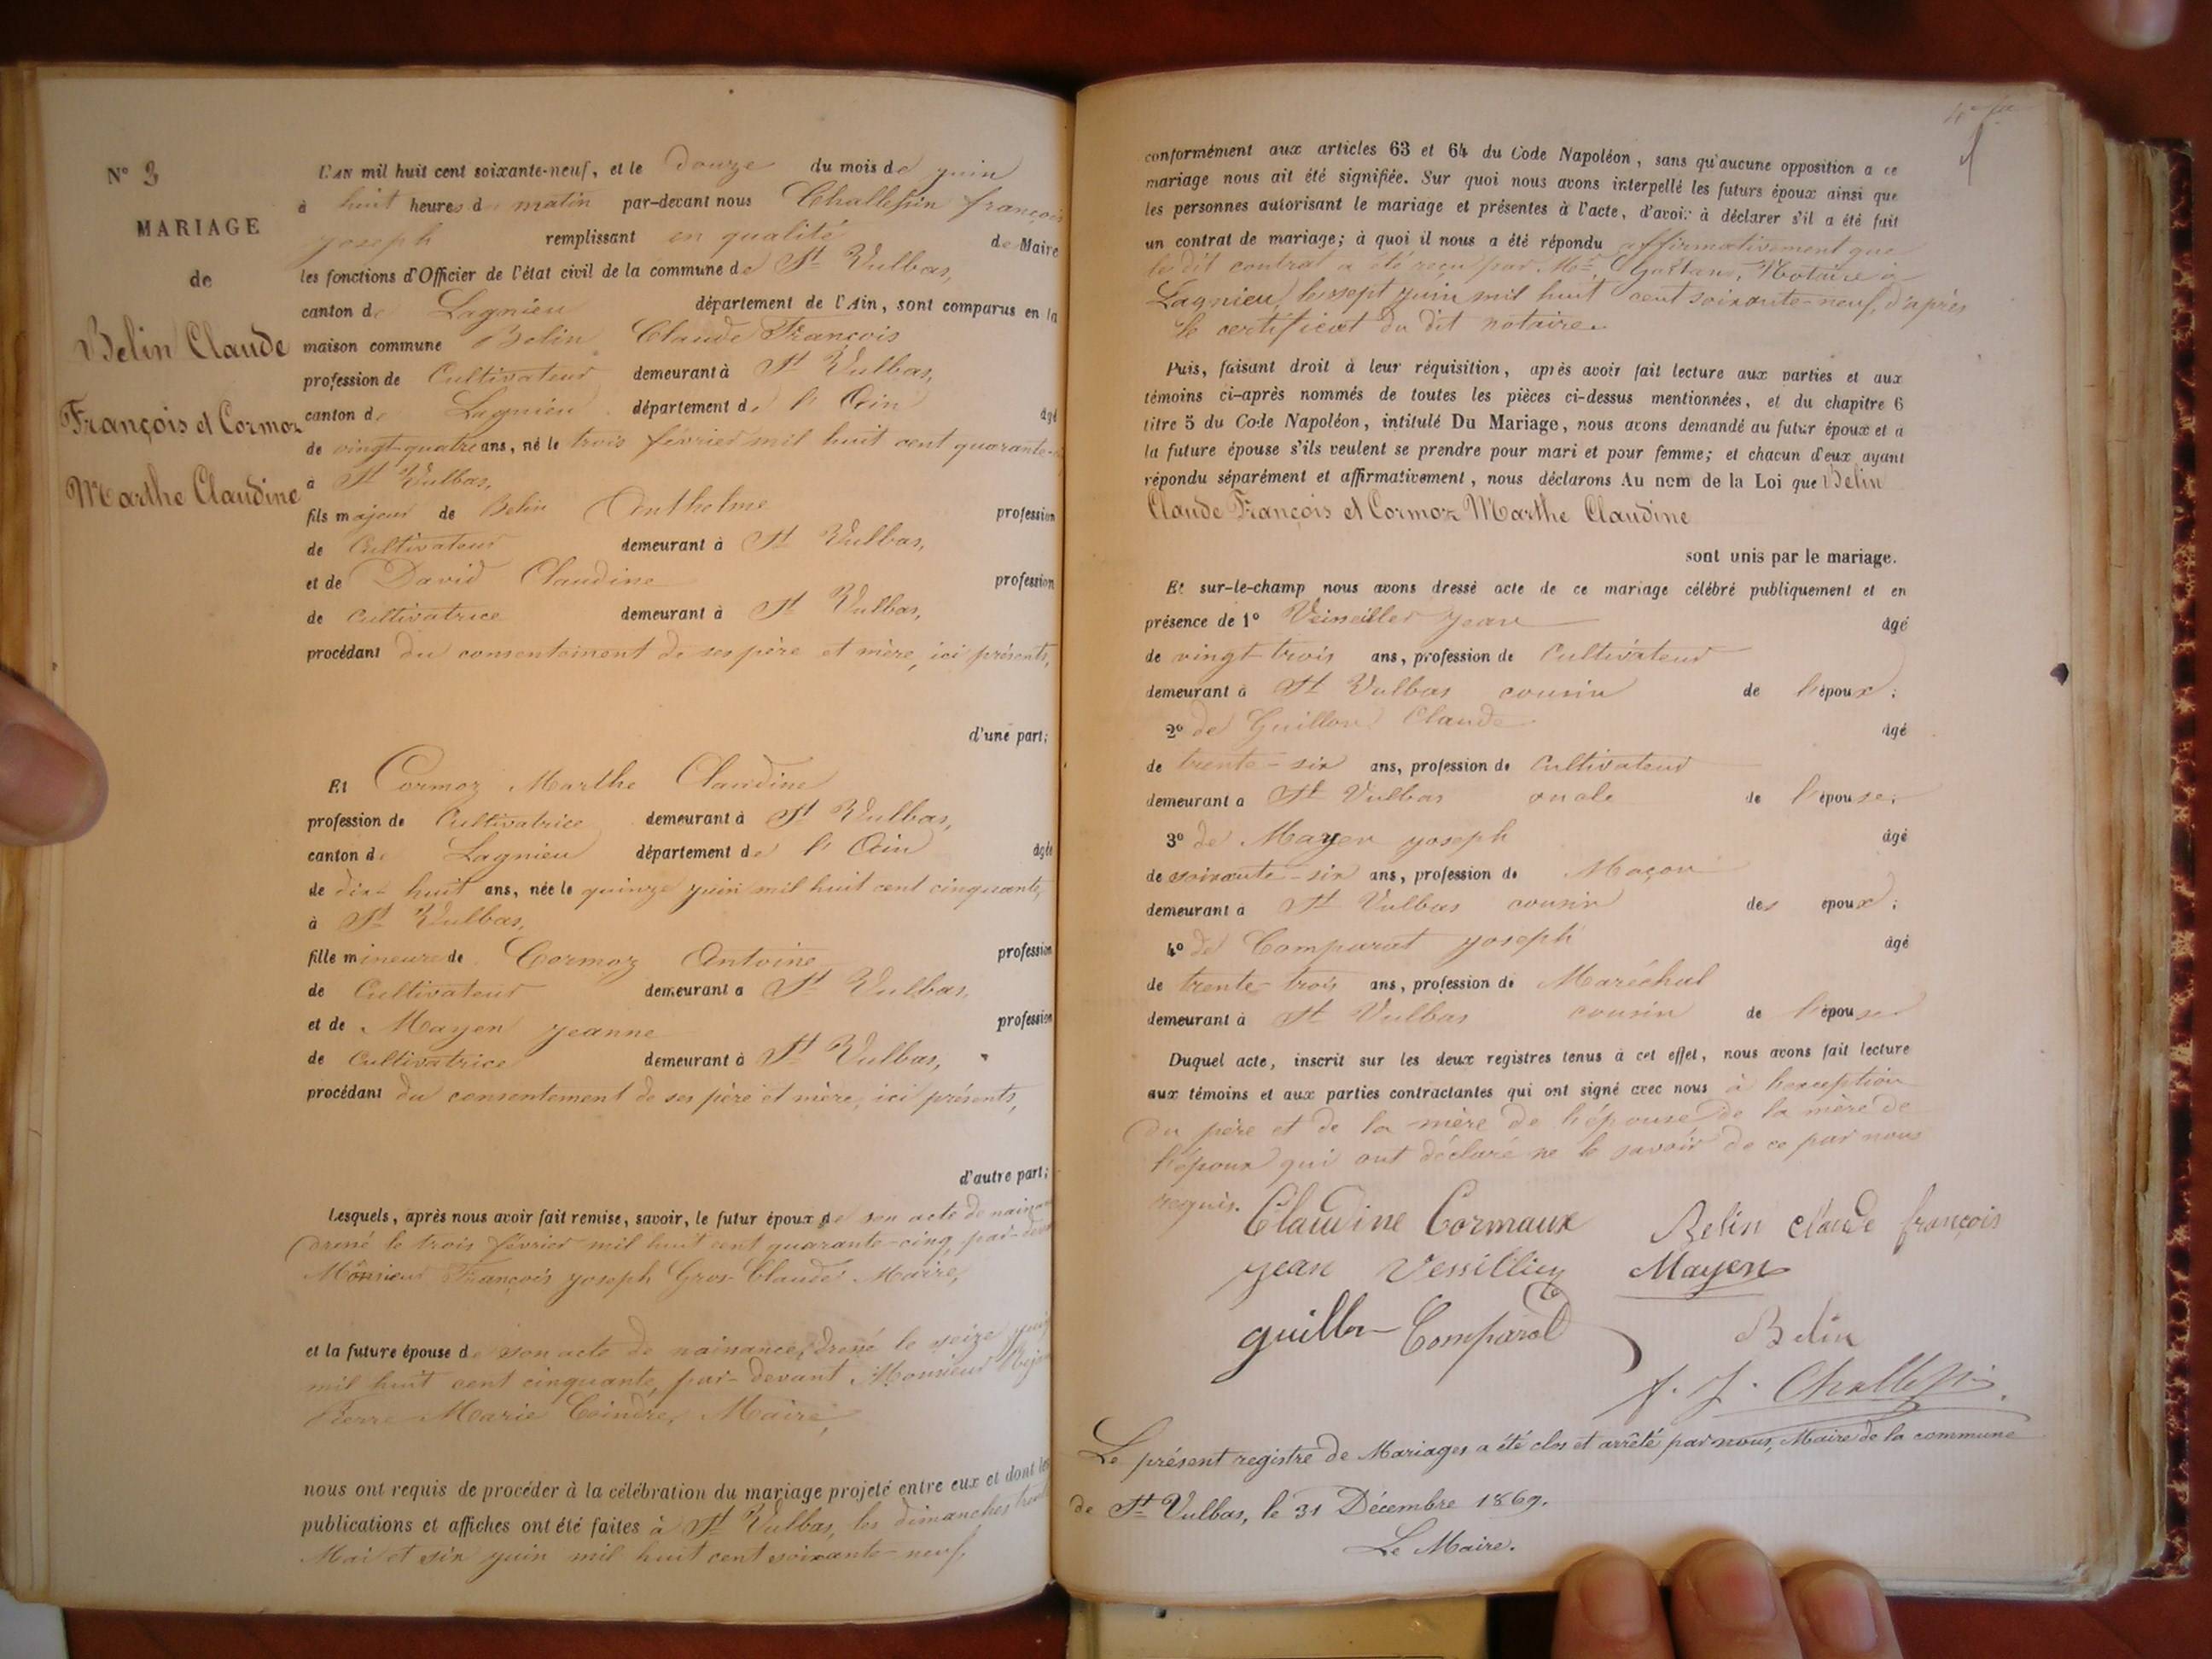 N° 3
MARIAGE
de
Belin Claude
François et Cormoz
Marthe Claudine
L'AN mil huit cent soixante-neuf, et le douze du mois de juin
à huit heures du matin par-devant nous Challepin françois
joseph remplissant en qualité de Maire
les fonctions d'Officier de l'état civil de la commune de St Vulbas,
canton de Lagnieu département de l'Ain, sont comparus en la
maison commune Belin Claude François
profession de Cultivateur demeurant à St Vulbas,
canton de Lagnieu département de l'Ain âgé
de vingt-quatre ans, né le trois février mil huit cent quarante-
à St Vulbas,
fils majeur de Belin Anthelme profession
de Cultivateur demeurant à St Vulbas,
et de David Claudine profession
de Cultivatrice demeurant à St Vulbas,
procédant du consentement de ses père et mère, ici présents,
d'une part;
Et Cormoz Marthe Claudine
profession de Cultivatrice demeurant à St Vulbas,
canton de Lagnieu département de l'Ain âgée
de dix-huit ans, née le quinze juin mil huit cent cinquante,
à St Vulbas,
fille mineure de Cormoz Antoine profession
de Cultivateur demeurant a St Vulbas,
et de Mayen jeanne profession
de Cultivatrice demeurant à St Vulbas,
procédant du consentement de ses père et mère, ici présents,
d'autre part;
Lesquels, après nous avoir fait remise, savoir, le futur époux de son acte de naissance
dressé le trois février mil huit cent quarante-cinq, par-devant
Monsieur François joseph Gros-Claude Maire,
et la future épouse de son acte de naissance, dressé le seize juin
mil huit cent cinquante, par-devant Monsieur
Pierre Marie Coindre, Maire,
nous ont requis de procéder à la célébration du mariage projeté entre eux et dont les
publications et affiches ont été faites à St Vulbas, les dimanches trente
Mai et six juin mil huit cent soixante-neuf,
conformément aux articles 63 et 64 du Code Napoléon, sans qu'aucune opposition a ce
mariage nous ait été signifiée. Sur quoi nous avons interpellé les futurs époux ainsi que
les personnes autorisant le mariage et présentes à l'acte, d'avoir à déclarer s'il a été fait
un contrat de mariage; à quoi il nous a été répondu affirmativement que
le dit contrat a été reçu par Me Notaire à
Lagnieu, le sept juin mil huit cent soixante-neuf, d'après
le certificat du dit notaire.
Puis, faisant droit à leur réquisition, après avoir fait lecture aux parties et aux
témoins ci-après nommés de toutes les pièces ci-dessus mentionnées, et du chapitre 6
titre 5 du Code Napoléon, intitulé Du Mariage, nous avons demandé au futur époux et a
la future épouse s'ils veulent se prendre pour mari et pour femme; et chacun d'eux ayant
répondu séparément et affirmativement, nous déclarons Au nom de la Loi que Belin
Claude François et Cormoz Marthe Claudine
sont unis par le mariage.
Et sur-le-champ nous avons dressé acte de ce mariage célébré publiquement et en
présence de 1° Veissiller jean âgé
de vingt-trois ans, profession de Cultivateur
demeurant à St Vulbas cousin de l'époux;
2° de Guillon Claude âgé
de trente-six ans, profession de Cultivateur
demeurant a St Vulbas oncle de l'épouse;
3° de Mayen joseph âgé
de soixante-six ans, profession de Maçon
demeurant a St Vulbas cousin des epoux;
4° de Comparat joseph âgé
de trente-trois ans, profession de Maréchal
demeurant à St Vulbas cousin de l'épouse
Duquel acte, inscrit sur les deux registres tenus à cet effet, nous avons fait lecture
aux témoins et aux parties contractantes qui ont signé avec nous à l'exception
du père et de la mère de l'épouse de la mère de
l'époux qui ont déclaré ne le savoir de ce par nous
requis.
Claudine Cormaux Belin claude françois
jean Vessillier Mayen
guillon Comparat Belin
f. J. Challepin
Le présent registre de Mariages a été clos et arrêté par nous, Maire de la commune
de St Vulbas, le 31 Décembre 1869.
Le Maire.